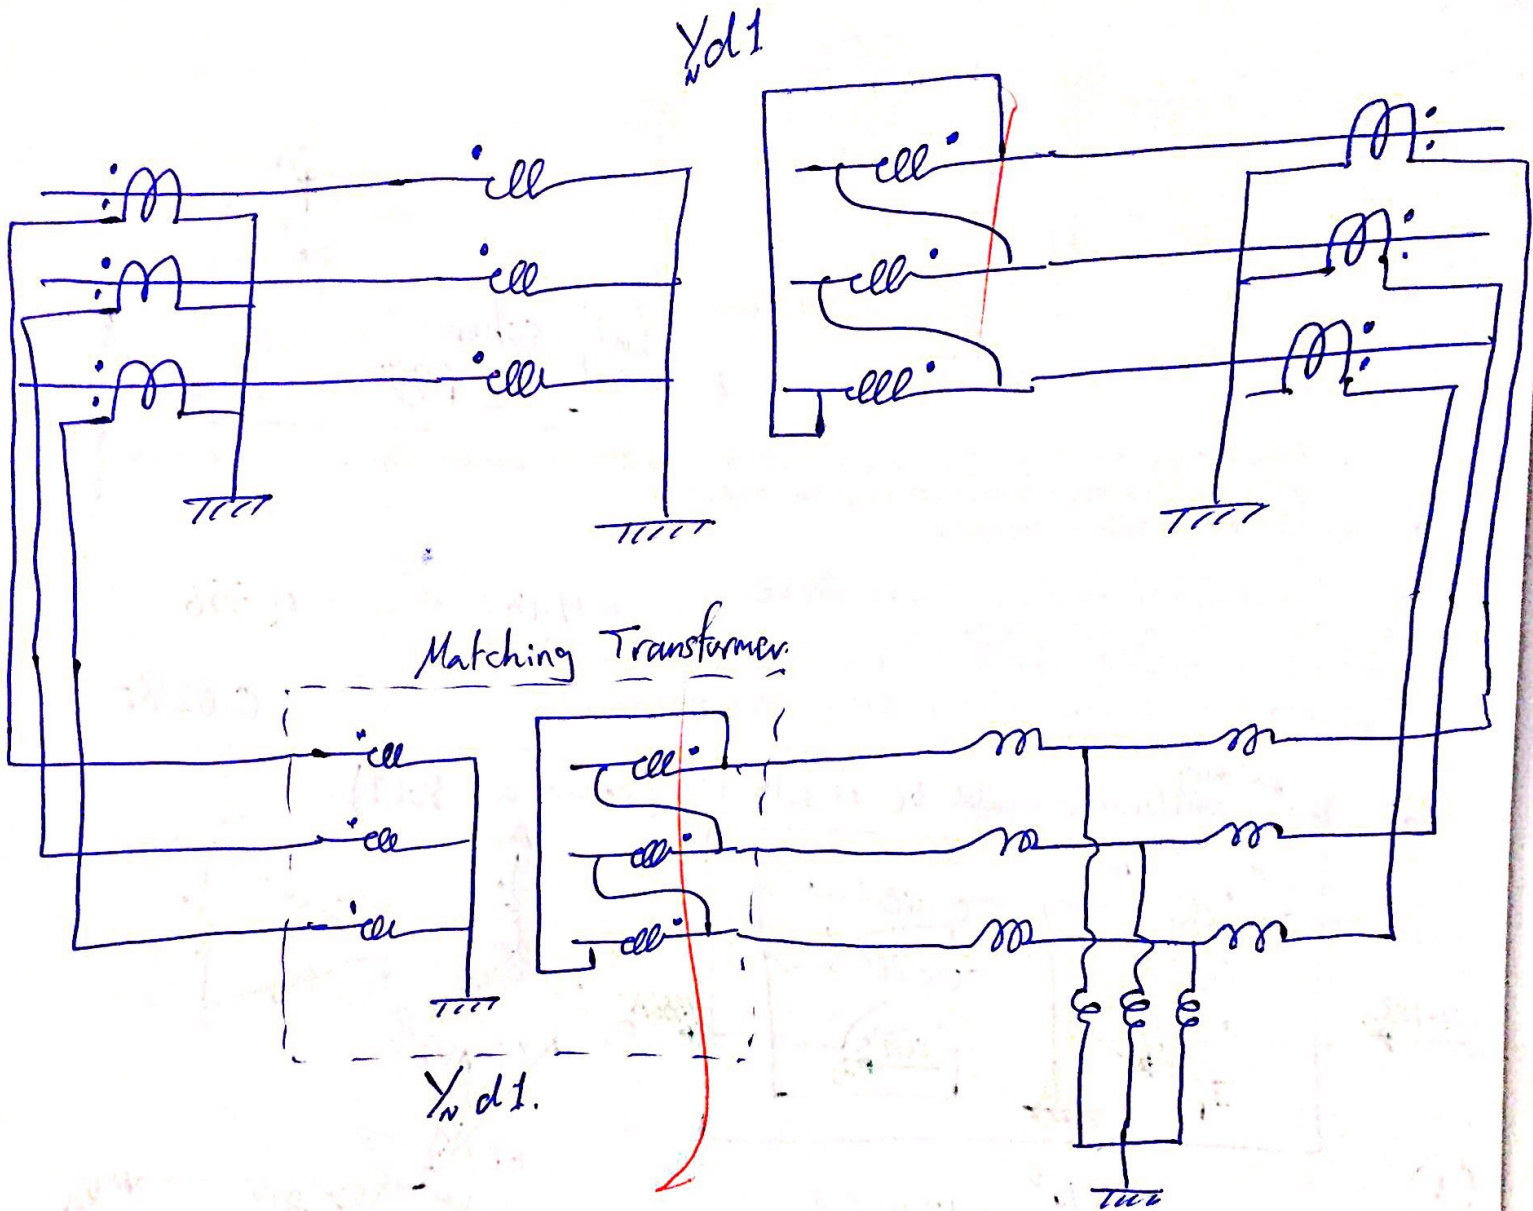 YNd1
Matching Transformer.
YN d1.